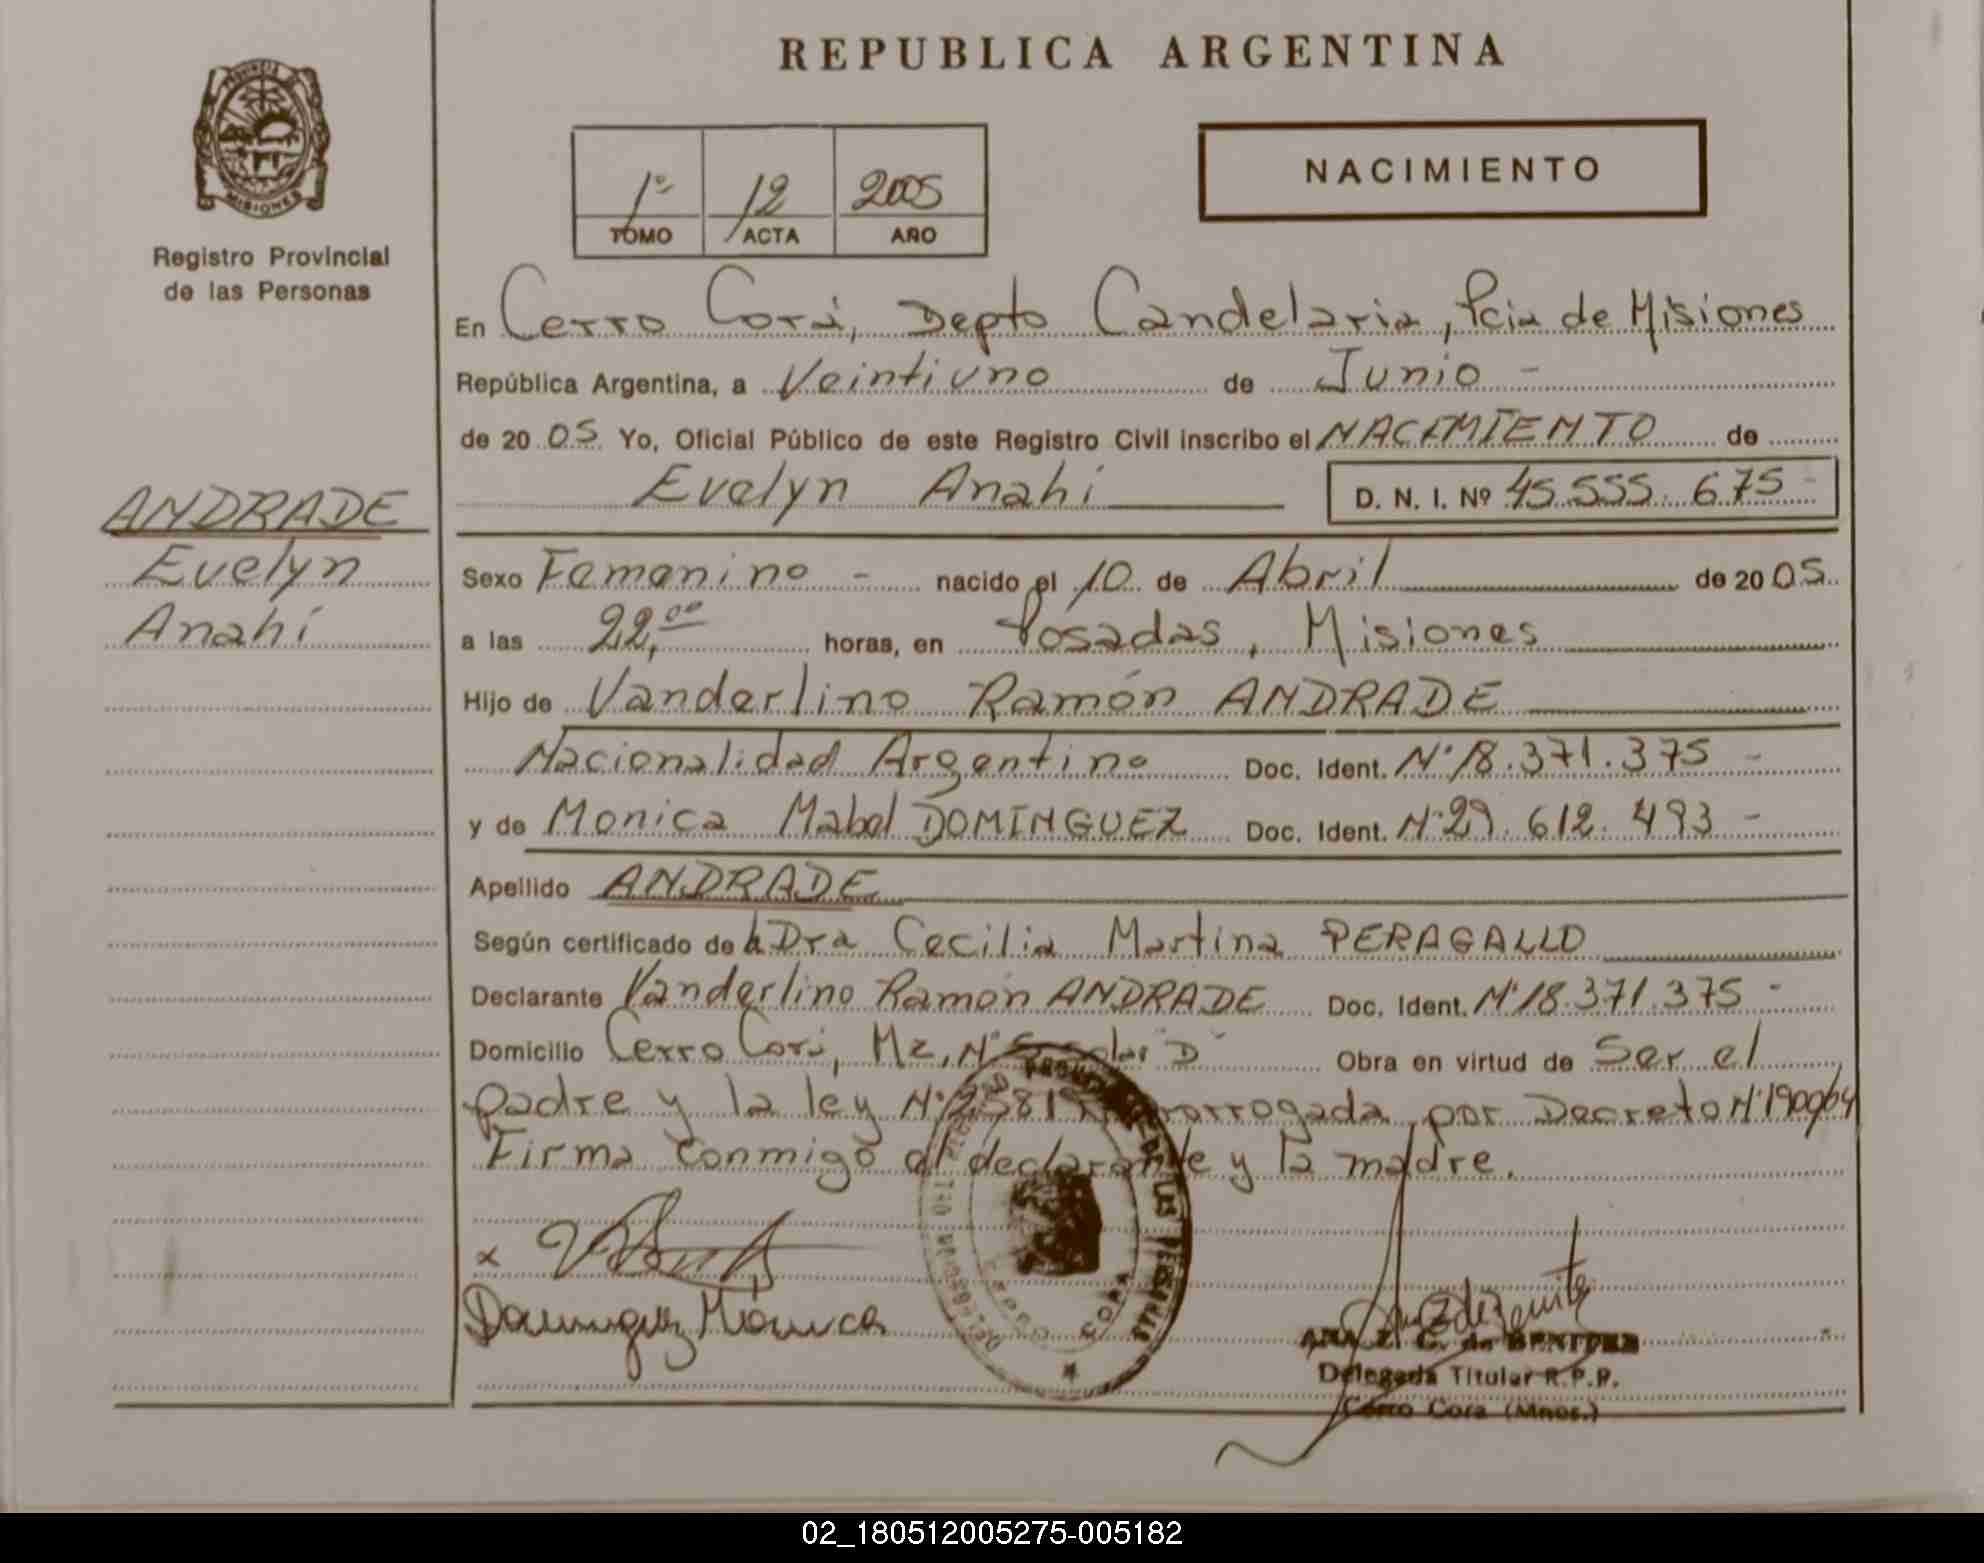 REPUBLICA ARGENTINA
PROVINCIA
MISIONES
Registro Provincial
de las Personas
1º 12 2005
TOMO ACTA AÑO
NACIMIENTO
En Cerro Corá, Depto Candelaria, Pcia de Misiones
República Argentina, a Veintiuno de Junio -
de 20 05 Yo, Oficial Público de este Registro Civil inscribo el NACIMIENTO de
Evelyn Anahí D. N. I. Nº 45.555.675 -
ANDRADE
Evelyn
Anahí
Sexo Femenino - nacido el 10 de Abril de 20 05
a las 22,00 horas, en Posadas, Misiones
Hijo de Vanderlino Ramón ANDRADE
Nacionalidad Argentino Doc. Ident. Nº 18.371.375 -
y de Monica Mabel DOMINGUEZ Doc. Ident. Nº 29.612.493 -
Apellido ANDRADE
Según certificado de la Dra Cecilia Martina PERAGALLO
Declarante Vanderlino Ramón ANDRADE Doc. Ident. Nº 18.371.375 -
Domicilio Cerro Corá, Mz, Nº "D" Obra en virtud de Ser el
padre y la ley Nº 25819 prorrogada por Decreto Nº
Firma conmigo el declarante y la madre.
x
Dominguez Mónica
DE LAS PERSONAS
CERRO CORA
ANA Z. C. de BENITEZ
Delegada Titular R.P.P.
Cerro Cora (Mnes.)
02_180512005275-005182